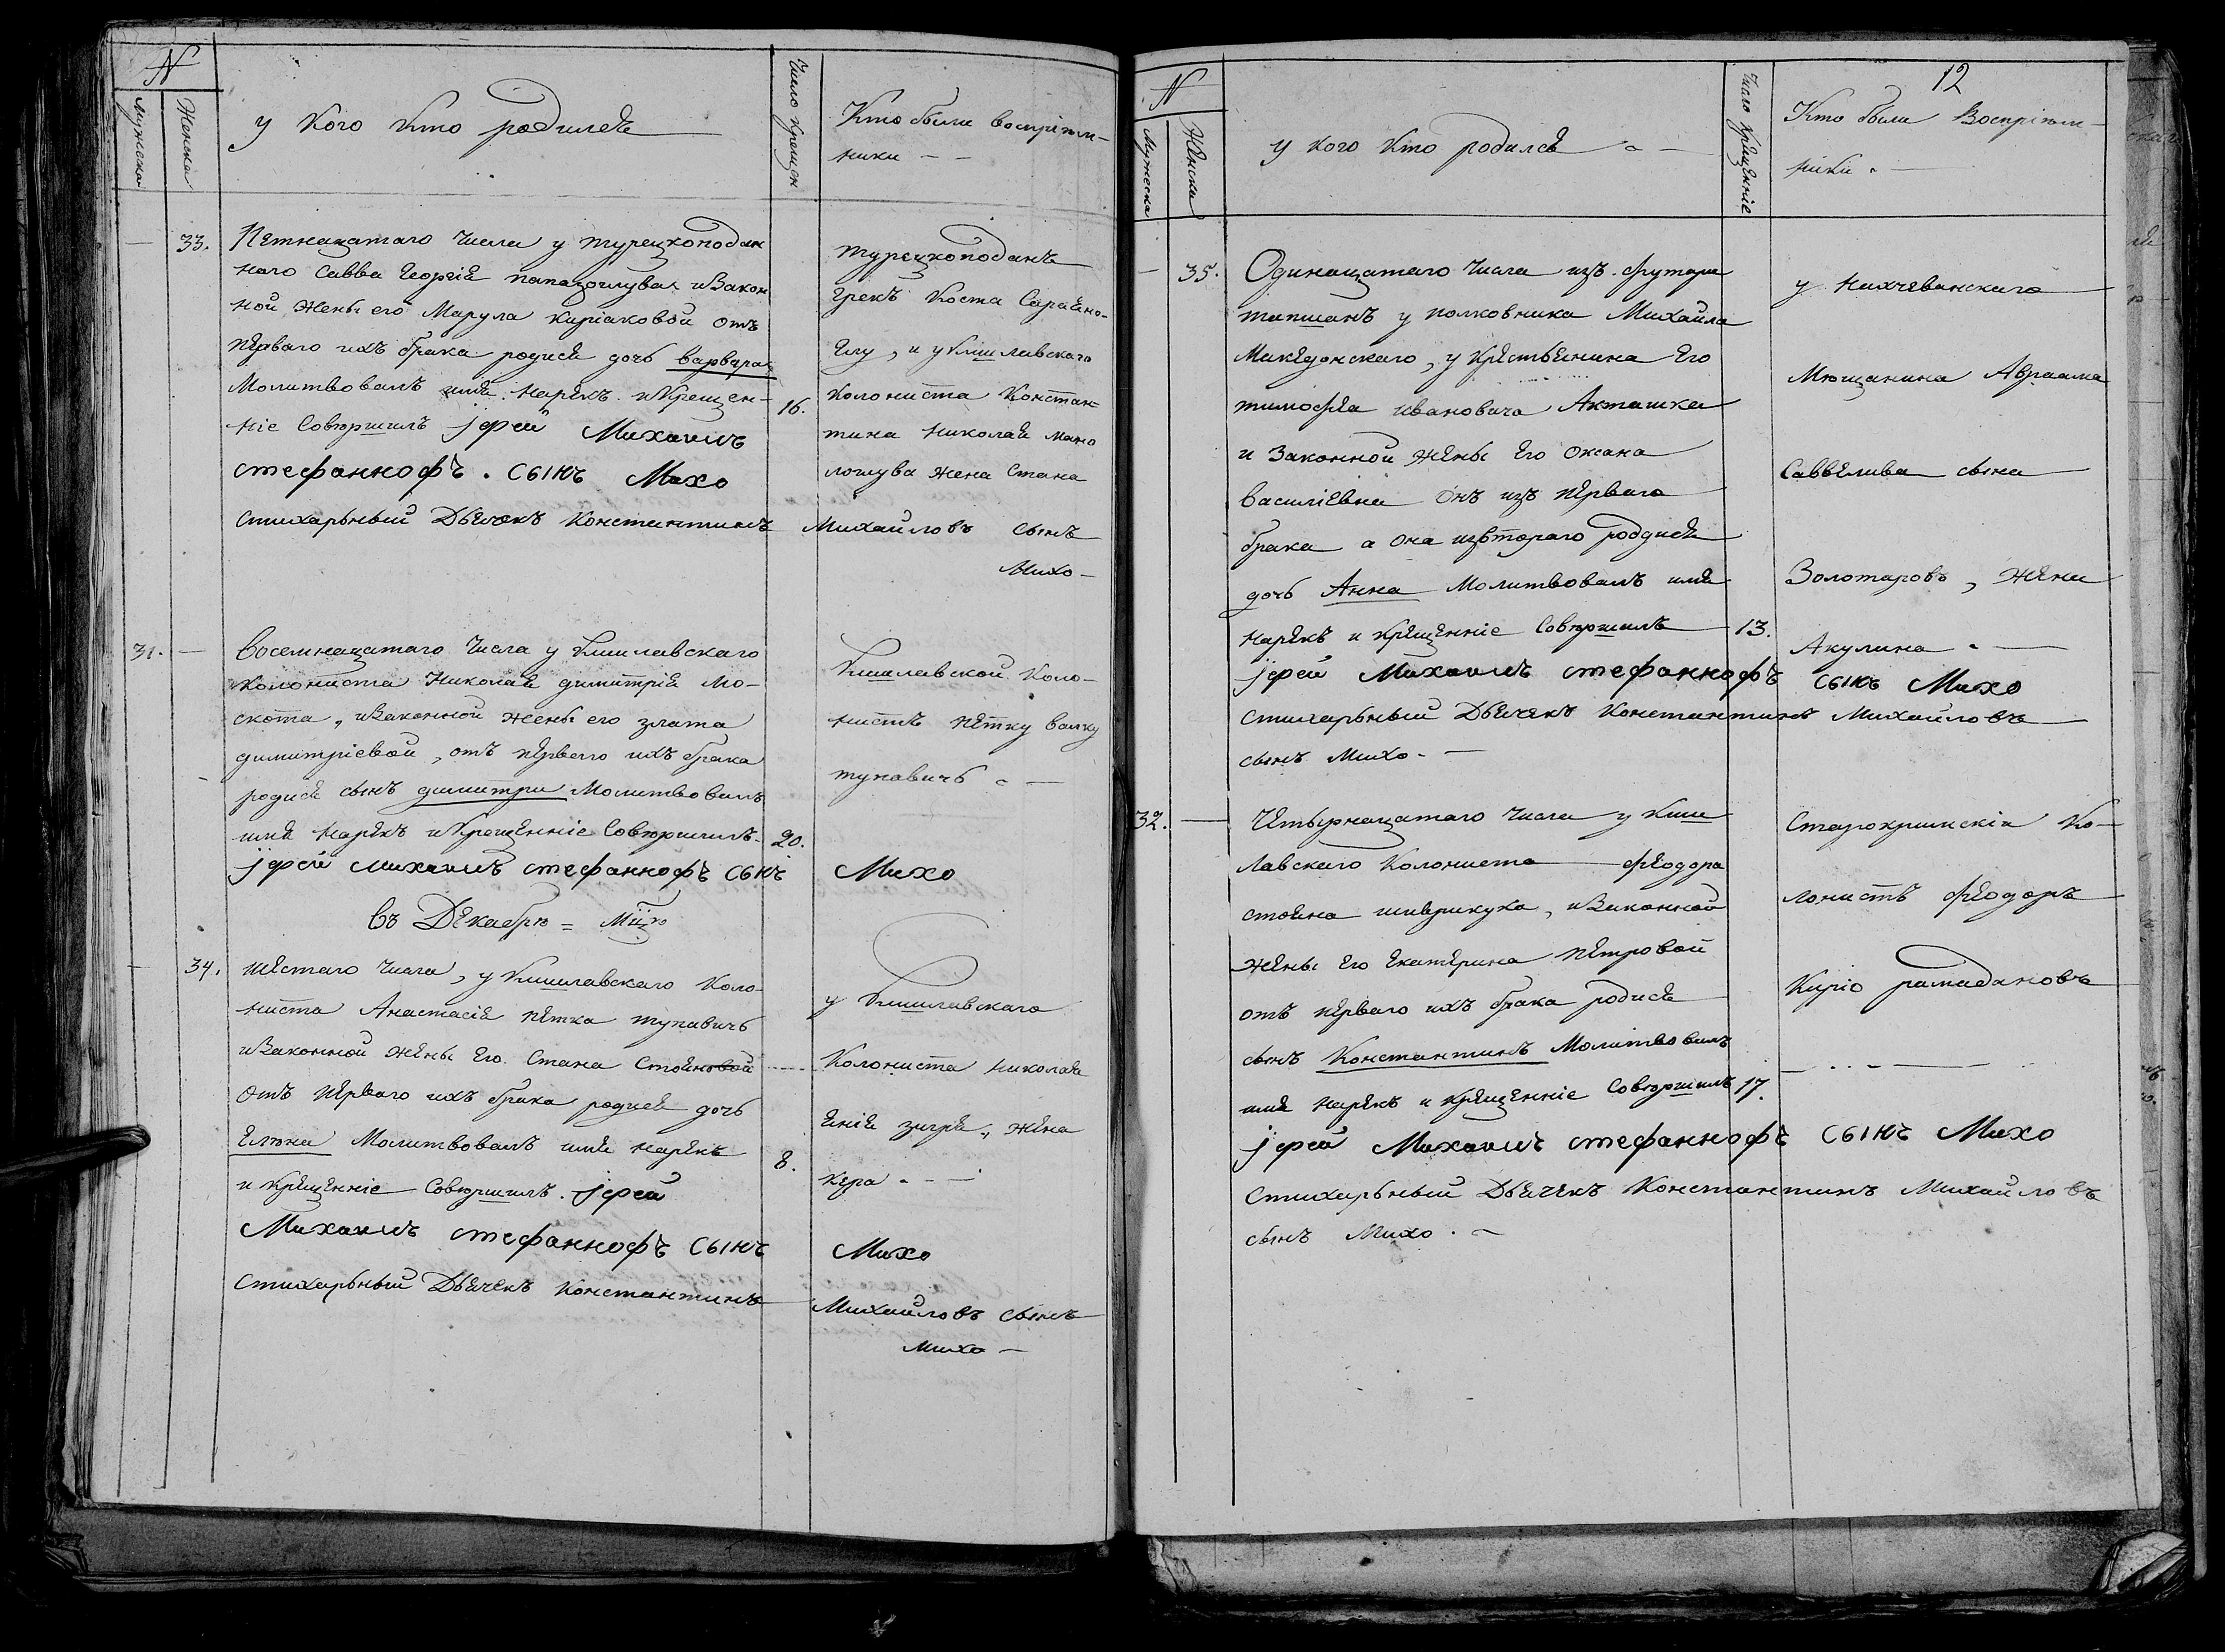 N
Мужеска
Женска
у кого кто родился
Число Крещен
Кто были воспріем-
ники - -
33.
Петнацатаго числа у турецкоподан
наго Савва Георгія папазоглува иЗакон
ной жены его Марула Киріаковой отъ
перваго ихъ брака родися дочь варвара
Молитвовалъ имя нарекъ иКрещен-
16.
ніе Совершилъ іерей Михаилъ
стефанноφъ. сынъ Михо
стихарьный Дьячекъ Константинъ Михайловъ сынъ
Михо -
турецкоподанъ
грекъ Коста
Елу, и у Кишлавскаго
колониста Констан-
тина Николая
жена Стана
31.
Восемнацатаго числа у Кишлавскаго
колониста Николая димитрія Мо-
скота, иЗаконной жены его злата
димитріевой, отъ перваго ихъ брака
родися сынъ димитри Молитвовалъ
имя нарекъ иКрещенніе Совершилъ. 20.
іерей михаилъ стефанноφъ сынъ Михо
Кишлавской коло-
нистъ петку валку
тунавичь
въ Декабрю = Мцю
34.
шестаго числа, у Кишлавскаго коло-
ниста Анастасія петка тунавичь
иЗаконной жены Его Стана Стояновой
отъ перваго ихъ брака родися дочь
Елена Молитвовалъ имя нарекъ
8.
и Крещенніе Совершилъ. іерей
Михаилъ стефанноφъ сынъ Михо
стихарьный Дьячекъ Константинъ Михайловъ сынъ
Михо -
у Кишлавскаго
Колониста Николая
жена
Кера
N
Мужеска
Женска
у кого кто родился
Число Крещенніе
12
Кто были Воспріем-
ники.
35.
Одинацатаго числа изъ футора
тапшанъ у полковника Михайла
Македонскаго, у крестьянина Его
тимофея ивановича Акташка
и Законной жены Его Оксана
Василіевна Онъ изъ перваго
брака а Она извтораго роддися
дочь Анна Молитвовалъ имя
нарекъ и крещенніе Совершилъ 13.
іерей Михаилъ стефанноφъ сынъ Михо
стихарьный Дьячекъ Константинъ Михайловъ
сынъ Михо. -
у Нахчеванскаго
Мющанина Авраама
Саввелива сына
Золотаровъ, жена
Акулина
32.
Четырнацатаго числа у Киш
лавскаго Колониста феодора
стояна иЗаконной
жены Его Екатерина петровой
отъ перваго ихъ брака родися
сынъ Константинъ Молитвовалъ
имя нарекъ и крещенніе Совершилъ 17.
іерей Михаилъ стефанноφъ сынъ Михо
Стихарьный Дьячекъ Константинъ Михайловъ
сынъ Михо. -
Старокримскія Ко-
лонистъ феодоръ
Киріо рамадановъ